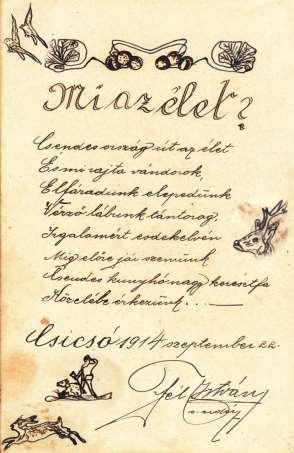 Mi az élet?
Csendes ország út az élet
És mi rajta vándorok,
Elfáradunk elepedünk
Vérző lábunk tántorog,
Irgalomért esdekelvén
Míg előre jár szemünk,
Csendes kunyhó nagy keresztfa
Közelébe érkezünk. . . —
Csicsó 1914 szeptember 22.
István